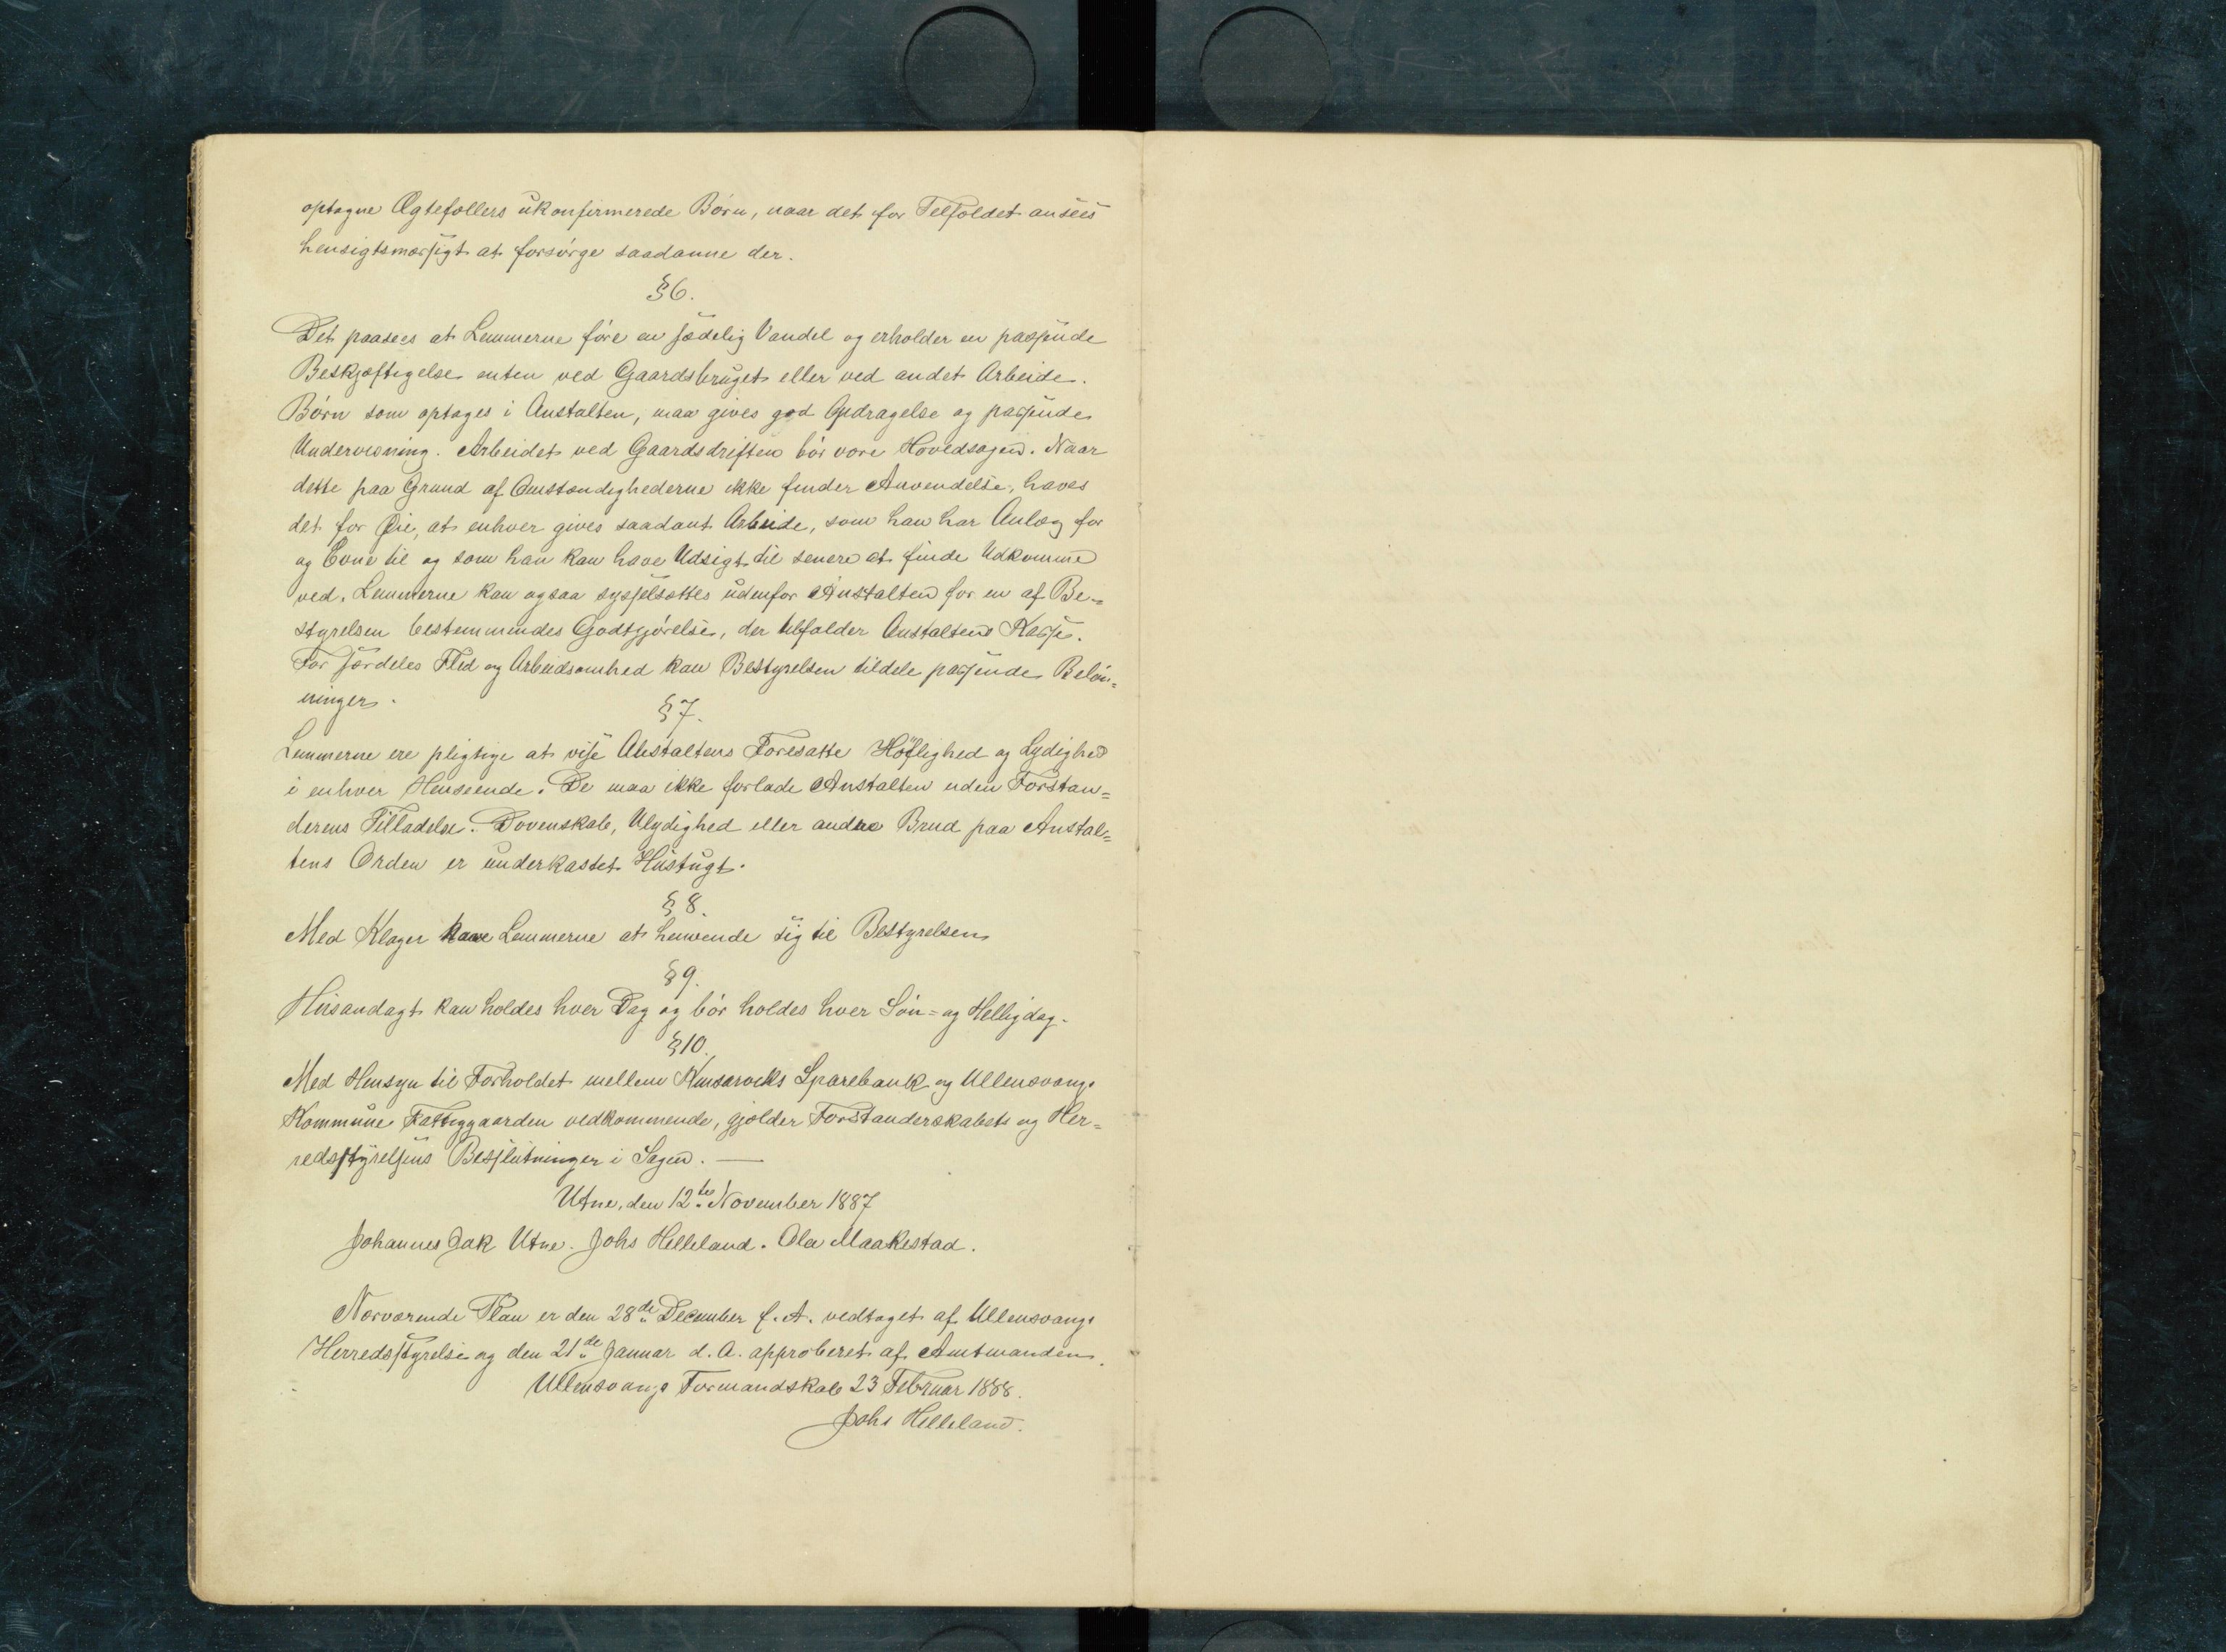 optagne Ægtefællers ukonfirmerede Børn, naar det for Telfældet ansees
hensigtsmæssigt at forsørge saadanne der.
§6.
Det paasees at Lemmerne føre en sædelig Vandel og erholder en passende
Beskjæftigelse enten ved Gaardsbruget eller ved andet Arbeide.
Børn som optages i Anstalten, maa gives god Opdragelse og passende
Undervisning. Arbeidet ved Gaardsdriften bør være Hovedsagen. Naar
dette paa Grund af Omstændighederne ikke finder Anvendelse, haves
det for Øie, at enhver gives saadant Arbeide, som han har Anlæg for
og Evne til og som han kan have Udsigt til senere at finde Udkomme
ved. Lemmerne kan ogsaa sysselsættes udenfor Anstalten for en af Be-
styrelsen bestemmendes Godtgjørelse, der tilfalder Anstaltens Kasse.
For særdeles Flid og Arbeidsomhed kan Bestyrelsen tildele passende Beløn-
ninger.
§7.
Lemmerne ere pligtige at vise Anstaltens Foresatte Høflighed og Lydighed
i enhver Henseende. De maa ikke forlade Anstalten uden Forstan-
derens Tilladelse. Dovenskab, Ulydighed eller andre Brud paa Anstal-
tens Orden er underkastet Hustugt.
§8.
Med Klager have Lemmerne at henvende sig til Bestyrelsen
§9.
Husandagt kan holdes hver Dag og bør holdes hver Søn- og Helligdag.
§10.
Med Hensyn til Forholdet mellem Kinsarviks Sparebank og Ullensvangs
Kommune Fattiggaarden vedkommende, gjælder Forstanderskabets og Her-
redsstyrelsens Beslutninger i Sagen. —
Utne, den 12te November 1887
Johannes Jak Utne. Johs Helleland. Ola Maakestad.
Nærværende Plan er den 28de December f. A. vedtaget af Ullensvangs
Herredsstyrelse og den 21de Januar d. A. approberet af Amtmanden.
Ullensvangs Formandskab 23 Februar 1888.
Johs Helleland.